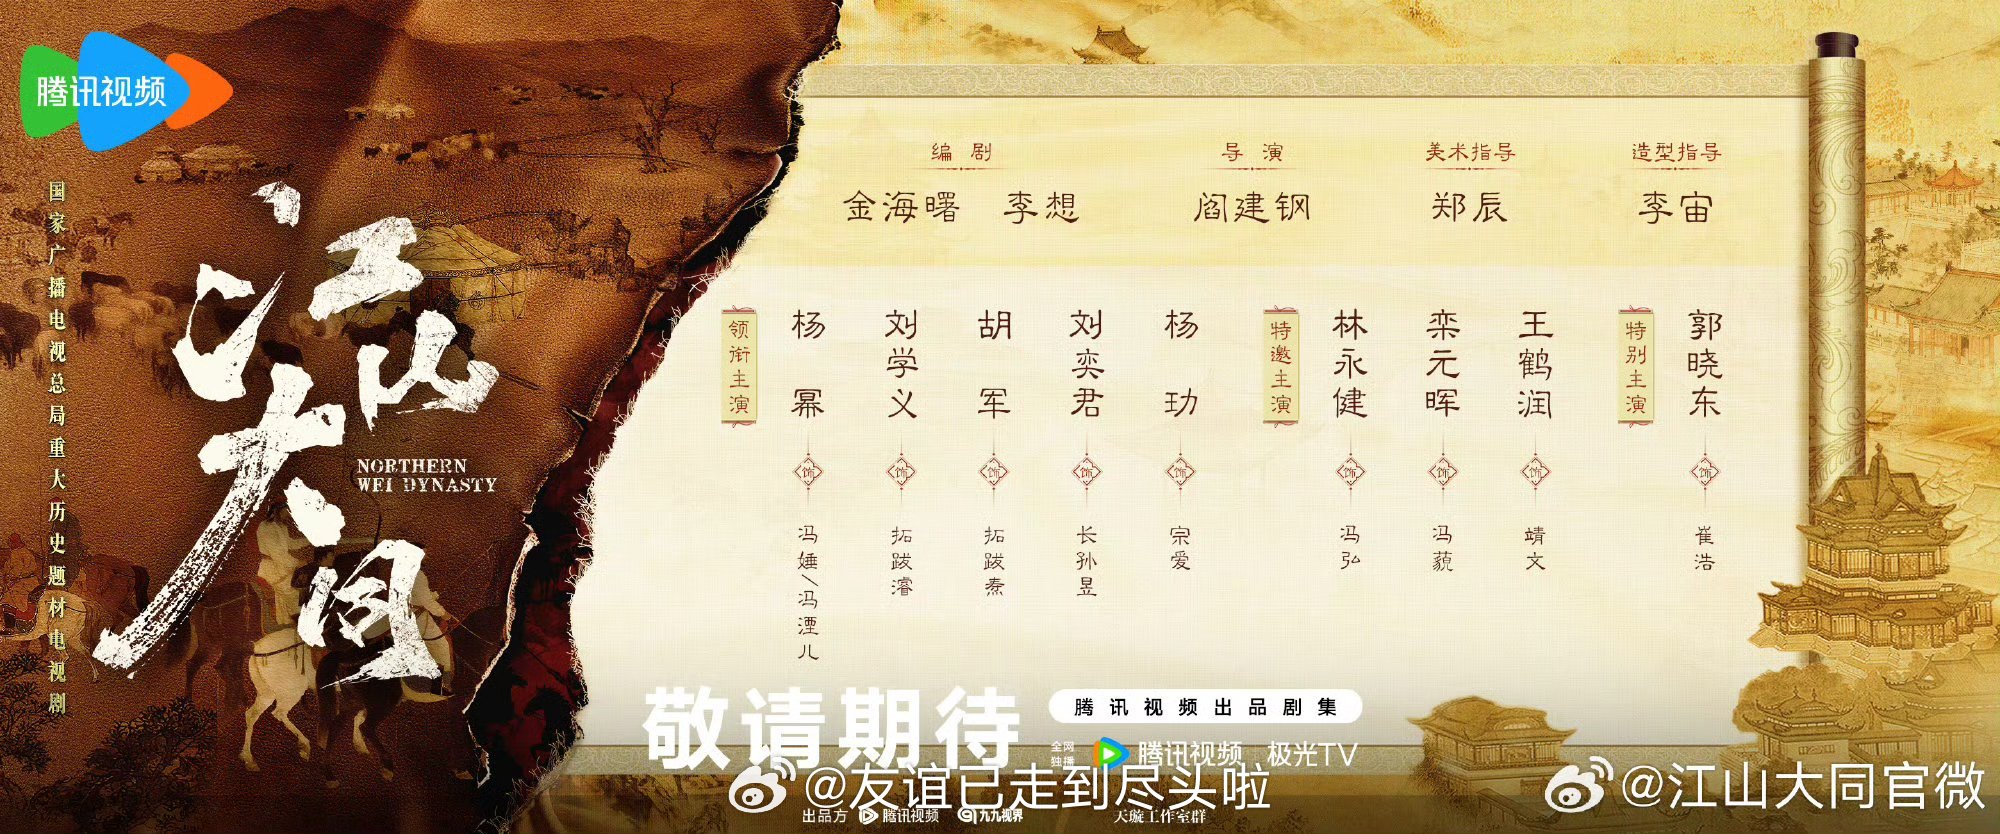 腾讯视频
国家广播电视总局重大历史题材电视剧
江山
大同
NORTHERN
WEI DYNASTY
编剧
金海曙 李想
导演
阎建钢
美术指导
郑辰
造型指导
李宙
领衔主演
杨幂 饰 冯娷/冯湮儿
刘学义 饰 拓跋濬
胡军 饰 拓跋焘
刘奕君 饰 长孙昱
杨玏 饰 宗爱
特邀主演
林永健 饰 冯弘
栾元晖 饰 冯藐
王鹤润 饰 靖文
特别主演
郭晓东 饰 崔浩
敬请期待
腾讯视频出品剧集
全网独播 腾讯视频 极光TV
@友谊已走到尽头啦
@江山大同官微
出品方 腾讯视频 九九视界 天璇工作室群